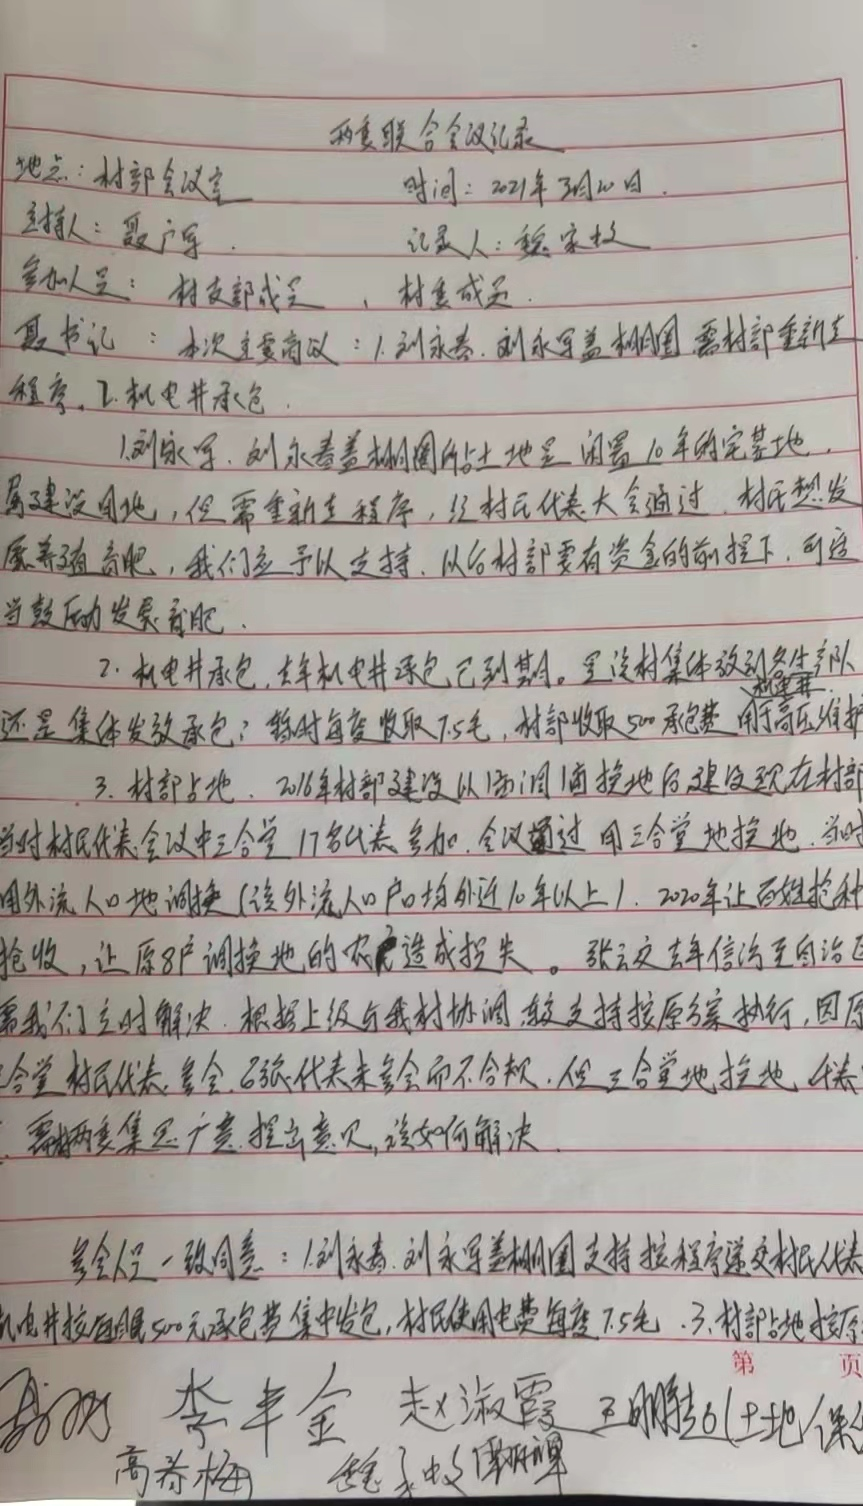 两委联合会议记录
地点：村部会议室 时间：2021年3月20日.
主持人：聂广军. 记录人：魏家校
参加人员：村支部成员、村委成员.
聂书记：本次主要商议：1.刘永春.刘永军盖棚圈需村部重新走
程序。2.机电井承包.
1.刘永军.刘永春盖棚圈所占土地是闲置10年的宅基地，
属建设用地，但需重新走程序，经村民代表大会通过.村民想发
展养殖育肥，我们应予以支持.以后村部要有资金的前提下.可适
当鼓励发展育肥.
2.机电井承包，去年机电井承包已到期。是该村集体放到各生产队
还是集体发放承包？暂时每度收取7.5毛，村部收取500承包费 用于高压维护
机电井
3.村部占地.2016年村部建设以调换地后建设现在村部
当时村民代表会议中三合堂17名代表参加.会议通过用三合堂地换地.当时
用外流人口地调换(该外流人口户口均外迁10年以上).2020年让百姓抢种
抢收，让原8户调换地的农户造成损失。张云文去年信访至自治区
需我们立时解决.根据上级与我村协调 支持按原方案执行，因原
合堂村民代表参会.代表未参会而不合规.但三合堂地换地
需村两委集思广意.提出意见，该如何解决.
参会人员一致同意：1.刘永春.刘永军盖棚圈支持按程序递交村民代表
机电井按每眼500元承包费集中发包，村民使用电费每度7.5毛.3.村部占地按原
第 页
李丰金 赵淑霞 (土地
高春梅